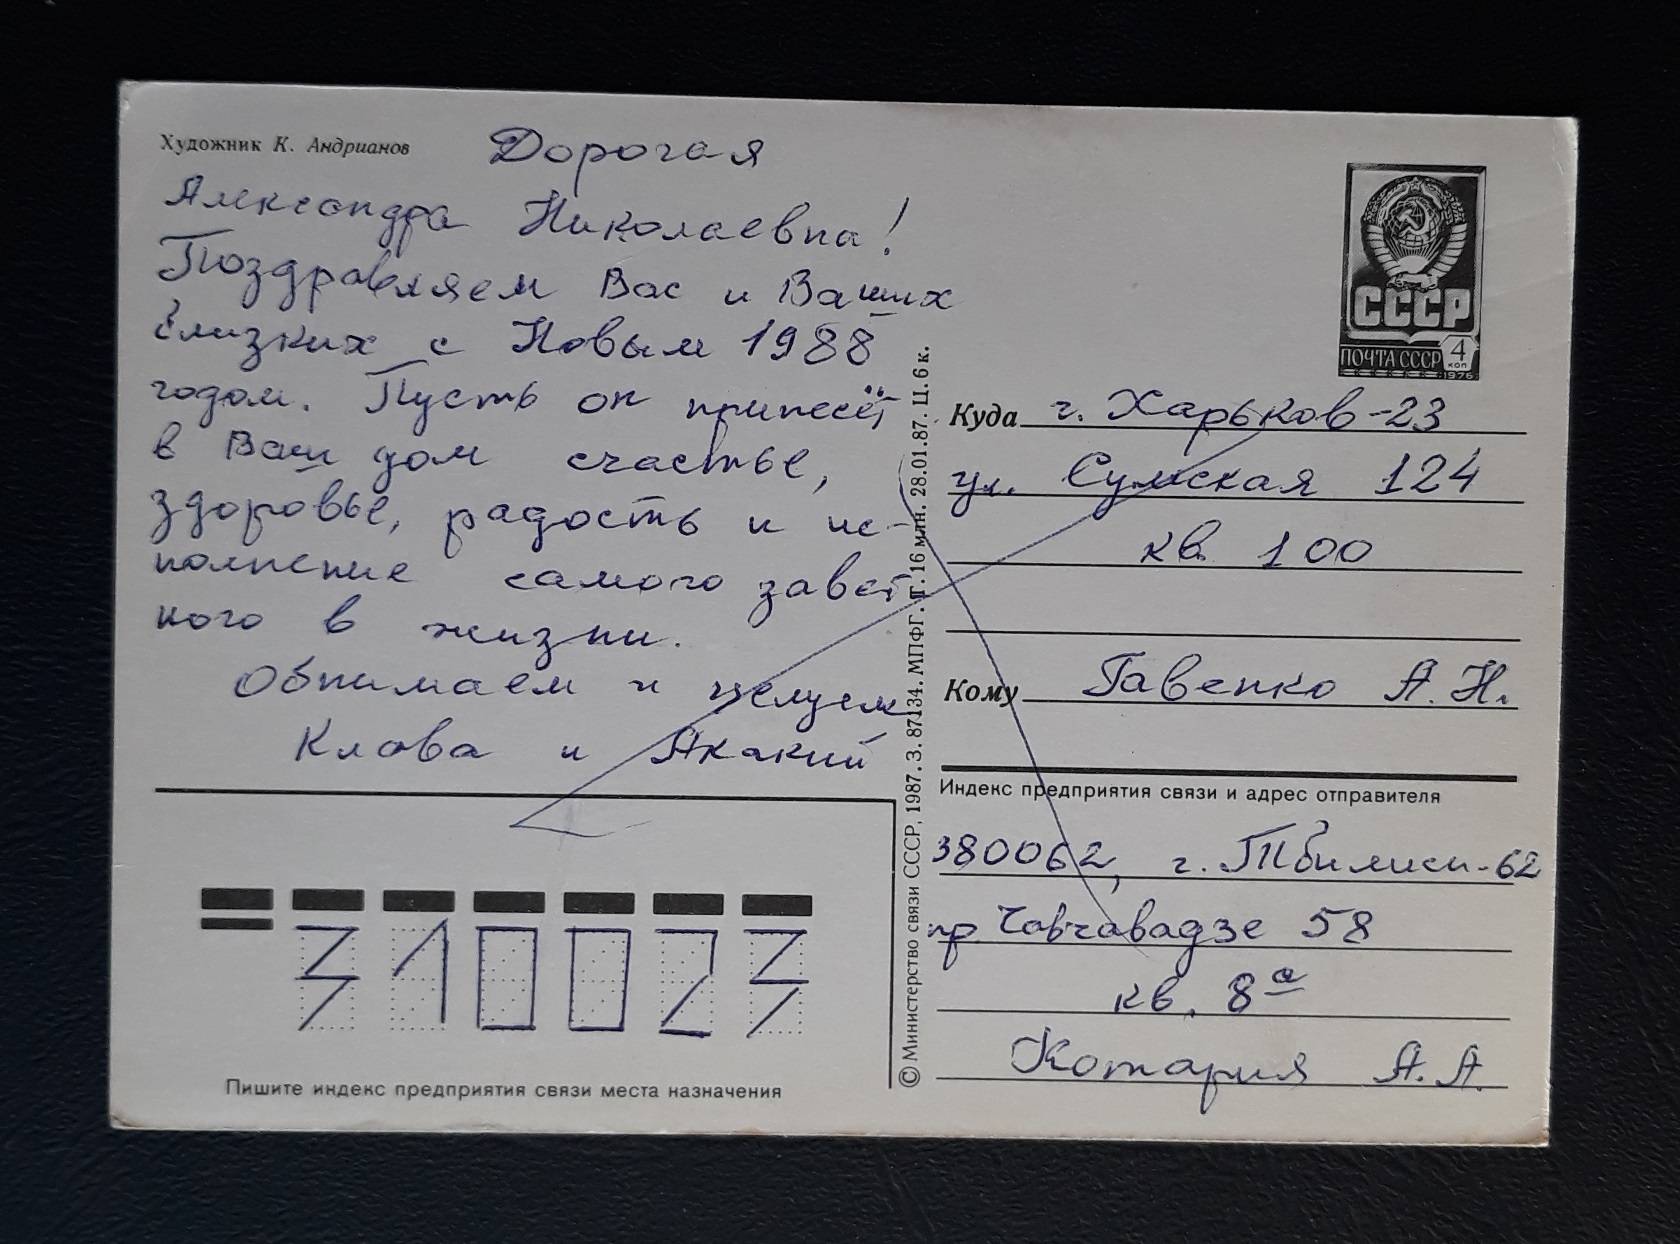 Художник К. Андрианов
Дорогая
Александра Николаевна!
Поздравляем Вас и Ваших
близких с Новым 1988
годом. Пусть он принесёт
в Ваш дом счастье,
здоровье, радость и ис-
полнение самого завет
ного в жизни.
Обнимаем и целуем
Клава и Акакий
СССР
ПОЧТА СССР 4 КОП
1976
Куда г. Харьков-23
ул. Сумская 124
кв. 100
Кому Гавенко А.Н.
Индекс предприятия связи и адрес отправителя
380062, г. Тбилиси-62
пр Чавчавадзе 58
кв. 8а
Котария А.А.
© Министерство связи СССР, 1987. З. 87134. МПФГ. Т. 16 млн. 28.01.87. Ц. 6 к.
310023
Пишите индекс предприятия связи места назначения